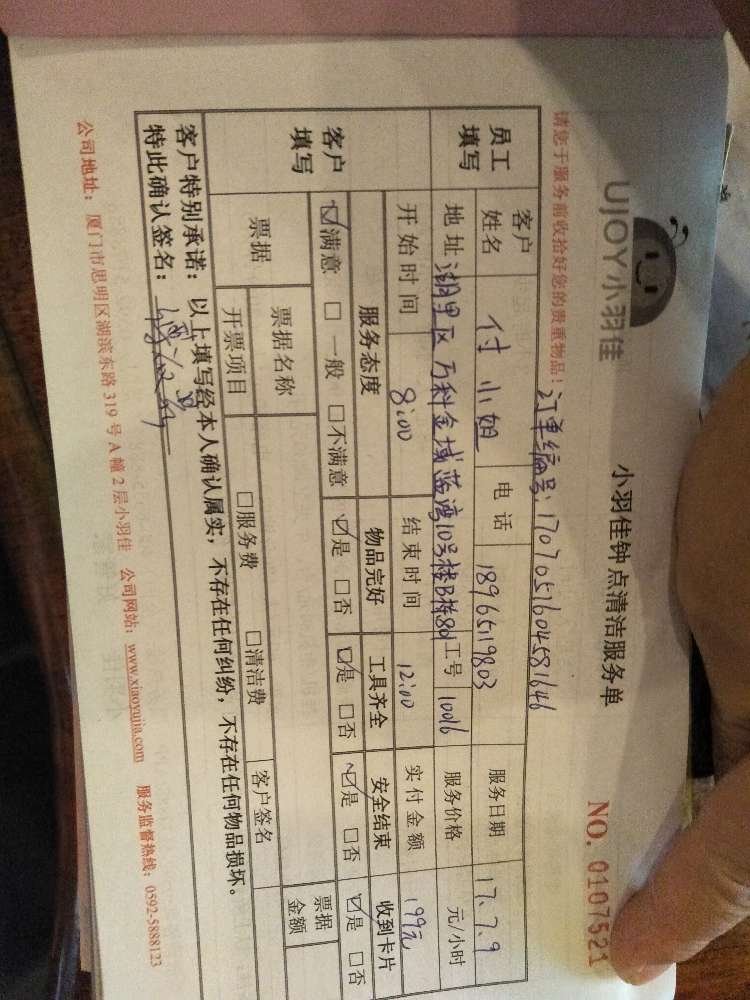 UJOY小羽佳
小羽佳钟点清洁服务单
NO. 0107521
请您于服务前收拾好您的贵重物品!
订单编号:1707051604581646
员工填写
客户姓名 付小姐 电话 18965119803 服务日期 17.7.9
地址 湖里区万科金域蓝湾10号楼B栋801 工号 10016 服务价格 元/小时
开始时间 8:00 结束时间 12:00 实付金额 199元
客户填写
服务态度 物品完好 工具齐全 安全结束 收到卡片
☑满意 □一般 □不满意 ☑是 □否 ☑是 □否 ☑是 □否 ☑是 □否
票据 票据名称 票据金额
开票项目 □服务费 □清洁费 客户签名
客户特别承诺:以上填写经本人确认属实,不存在任何纠纷,不存在任何物品损坏。
特此确认签名:
公司地址:厦门市思明区湖滨东路319号A幢2层小羽佳 公司网站:www.xiaoyujia.com 服务监督热线:0592-5888123